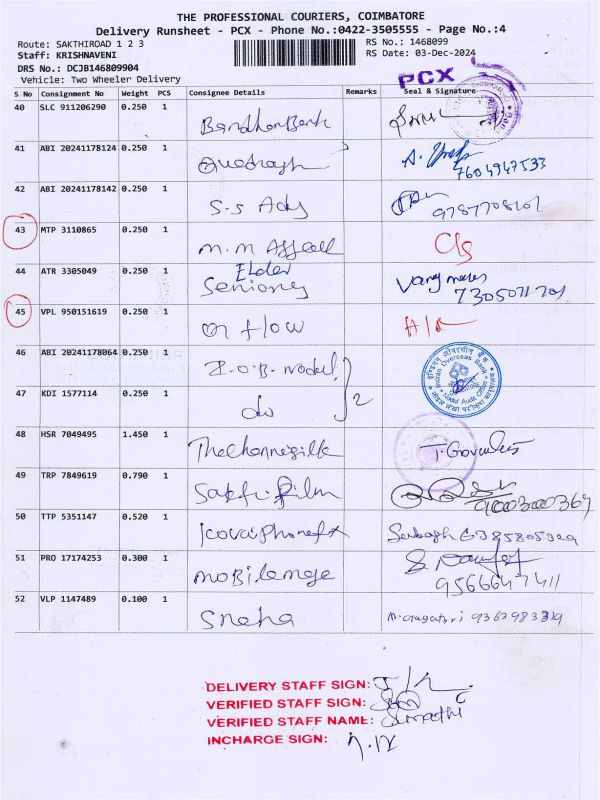 THE PROFESSIONAL COURIERS, COIMBATORE
Delivery Runsheet - PCX - Phone No.:0422-3505555 - Page No.:4
Route: SAKTHIROAD 1 2 3 RS No.: 1468099
Staff: KRISHNAVENI RS Date: 03-Dec-2024
DRS No.: DCJB146809904
Vehicle: Two Wheeler Delivery
PCX
S No Consignment No Weight PCS Consignee Details Remarks Seal & Signature
40 SLC 911206290 0.250 1 Bandhan Bank
41 ABI 20241178124 0.250 1 7604947533
42 ABI 20241178142 0.250 1 S.S Ads 9787708161
43 MTP 3110865 0.250 1 M.M C/s
44 ATR 3305049 0.250 1 Elder 7305071701
45 VPL 950151619 0.250 1 flow
46 ABI 20241178064 0.250 1 I.O.B. nodal 2
Indian Overseas Bank
47 KDI 1577114 0.250 1 do
48 HSR 7049495 1.450 1 Thechennaisilk
49 TRP 7849619 0.790 1 Sakthi film 900300369
50 TTP 5351147 0.520 1
51 PRO 17174253 0.300 1 mobilemage 9566647411
52 VLP 1147489 0.100 1 Sneha
DELIVERY STAFF SIGN:
VERIFIED STAFF SIGN:
VERIFIED STAFF NAME: Sumathi
INCHARGE SIGN: